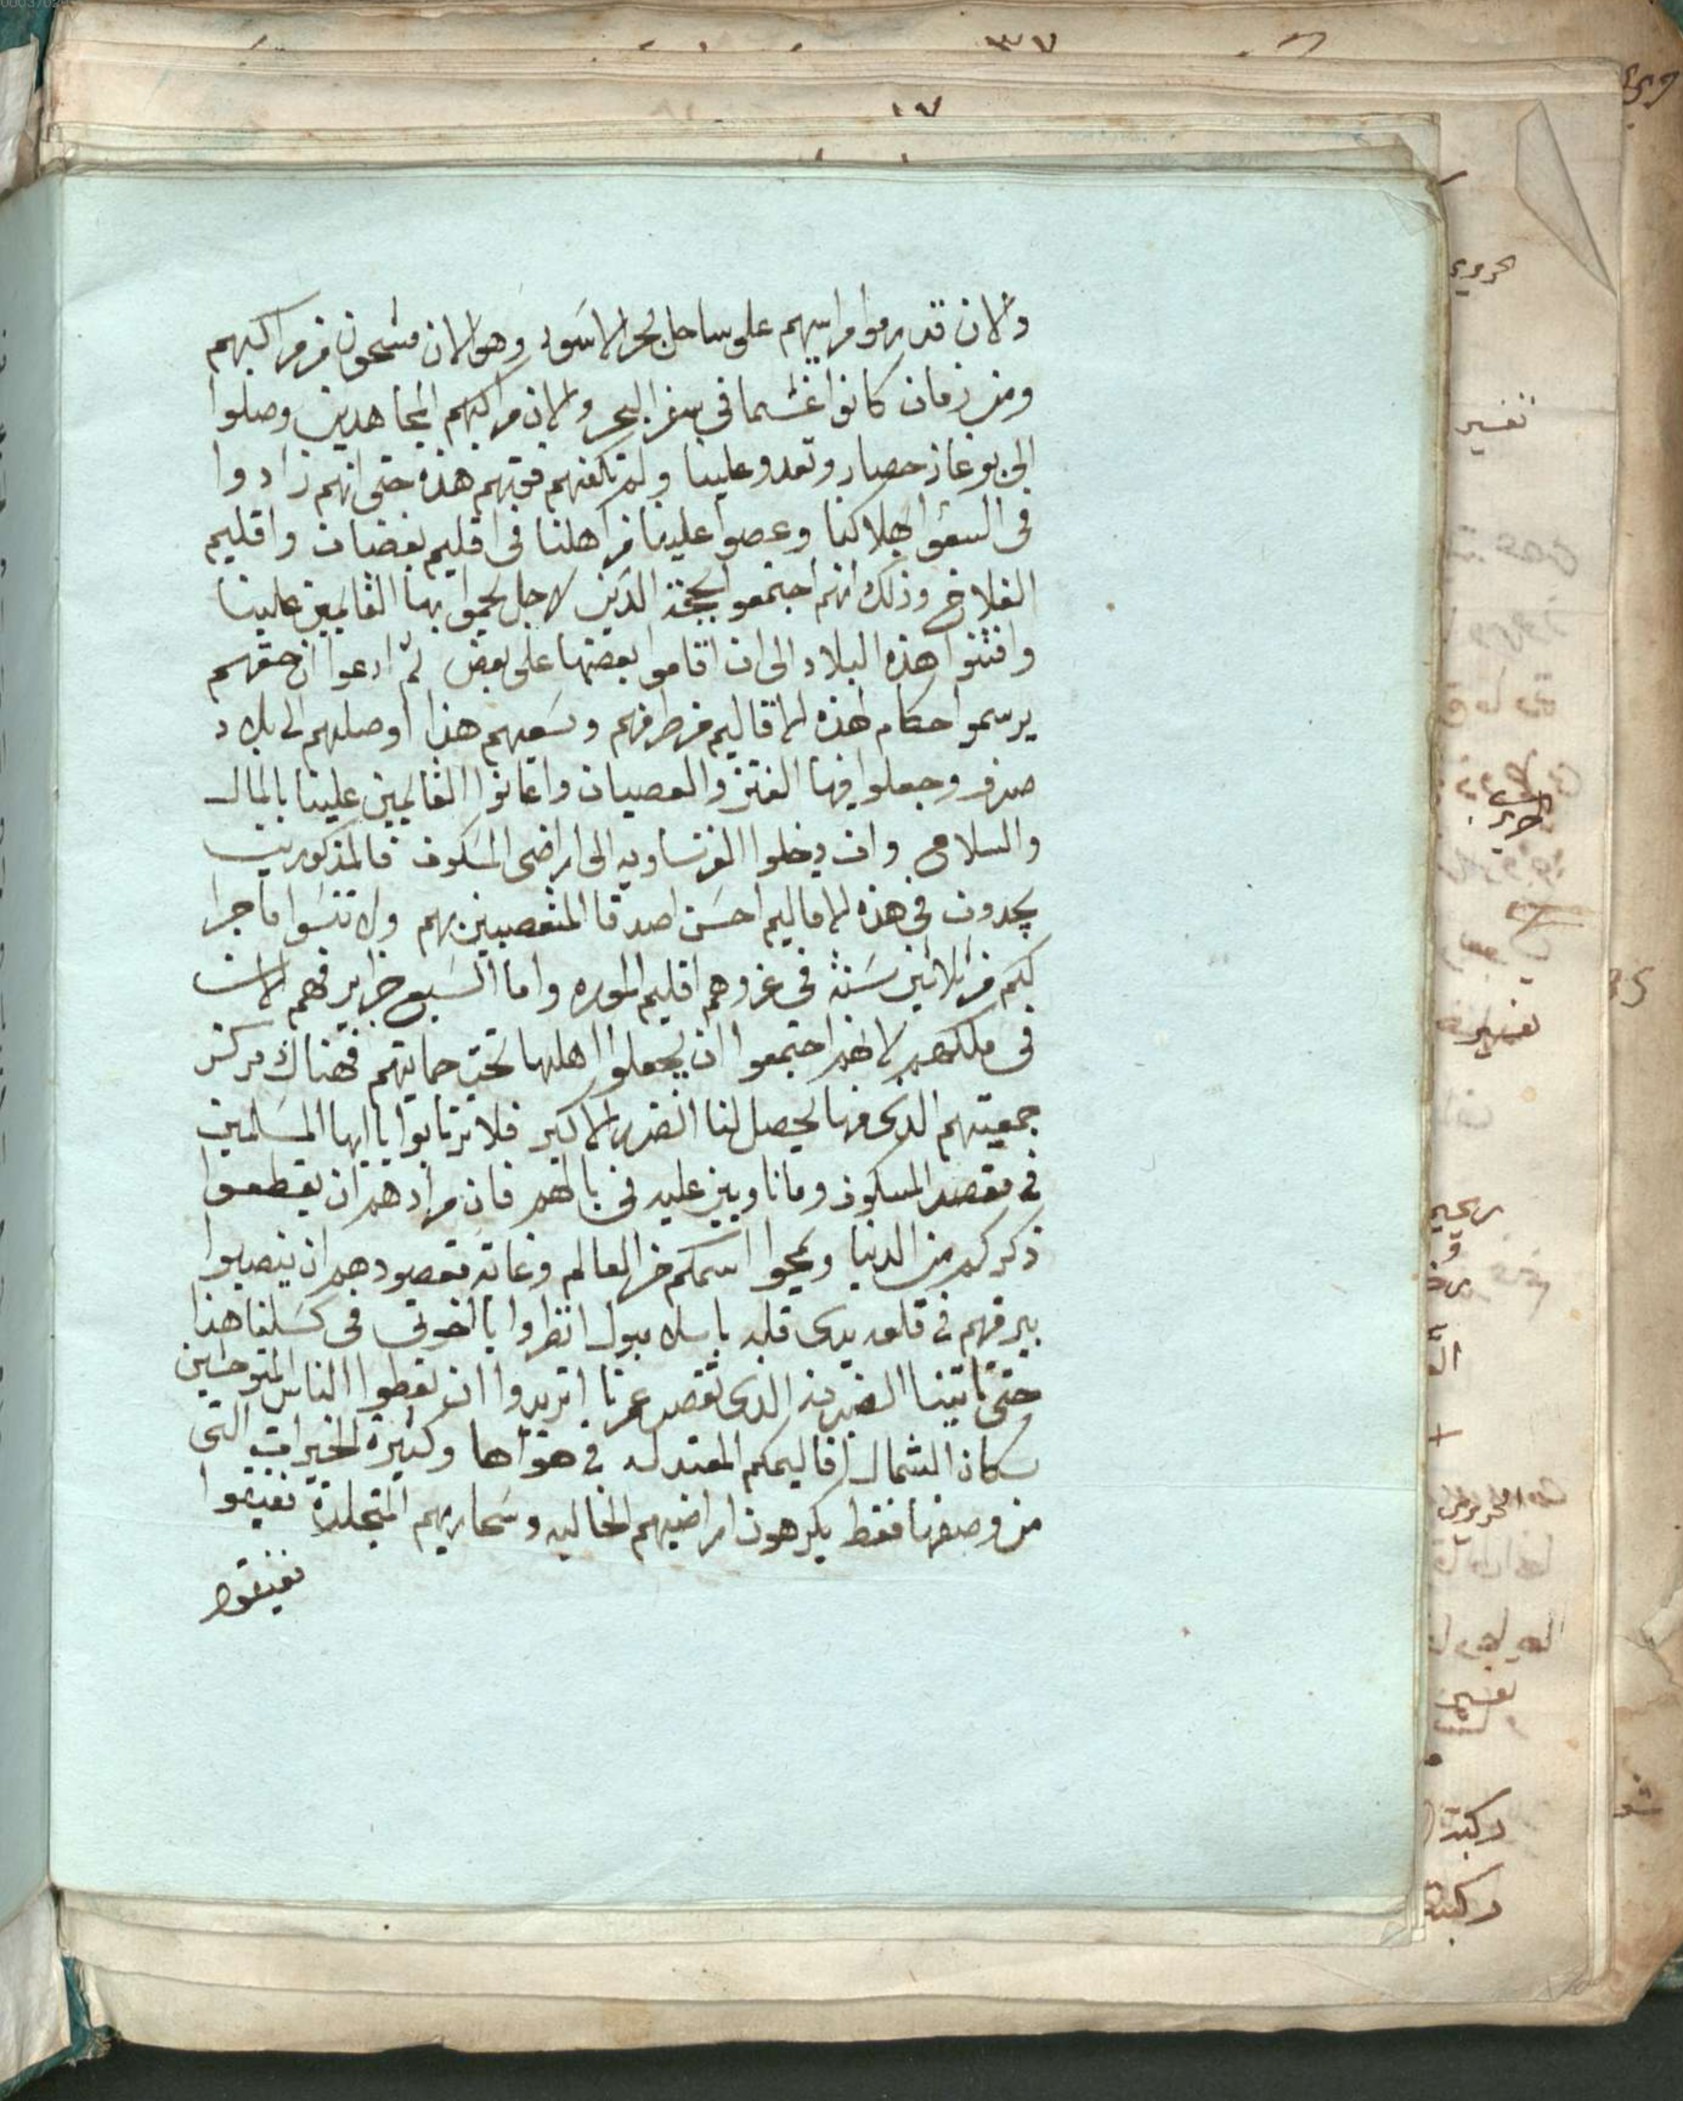 والان قد رموا مراسيهم على ساحل بحر الاسود وهو الان مشحون من مراكبهم
ومن زمان كانوا غشما في سفر البحر والان مراكبهم المجاهدين وصلوا
الى بوغاز حصار وتعدو علينا ولم تكفهم قوتهم هذه حتى انهم زادوا
فى السعى بهلاكنا وعصوا علينا من اهلنا فى اقليم بغضان واقليم
الفلاخ وذلك انهم اجتمعو بحجة الدين لاجل يحموا بها القايمين علينا
وافتنوا هذه البلاد الى ان اقاموا بعضها على بعض ثم ادعوا ان حقهم
يرسموا احكام هذه الاقاليم من طرفهم وسعيهم هذا اوصلهم الى بلاد
صرف وجعلوا فيها الفتن والعصيان واعانوا القايمين علينا بالمال
والسلاح وان دخلوا الفرنساويه الى اراضى المسكوف فالمذكورين
يجدون فى هذه الاقاليم احسن اصدقا المتعصبين بهم ولا تنسوا ما جرا
لكم من ثلاثين سنة فى غزوهم اقليم الموره واما السبع جزاير فهم الان
فى ملكهم لانهم اجتمعوا ان يجعلوا اهلها تحت حمايتهم فهناك مركز
جمعيتهم الذى منها يحصل لنا الضرر الاكبر فلا ترتابوا يا ايها المسلمين
في مقصد المسكوف وما ناويين عليه فى بالهم فان مرادهم ان يقطعوا
ذكركم من الدنيا ويمحوا اسمكم من العالم وغاية مقصودهم ان ينصبوا
بيرقهم في قلعه يدى قله باسلامبول انظروا يا اخوتى فى كسلنا هذا
حتى تاتينا الضربه الذى تقصر عمرنا اتريدوا ان تعطوا الناس المتوحشين
سكان الشمال اقاليمكم المعتدله في هواها وكثيرة الخيرات التى
من وصفها فقط يكرهون اراضيهم الخاليه وسحاريهم المتجلدة تفيقوا
تفيقوا